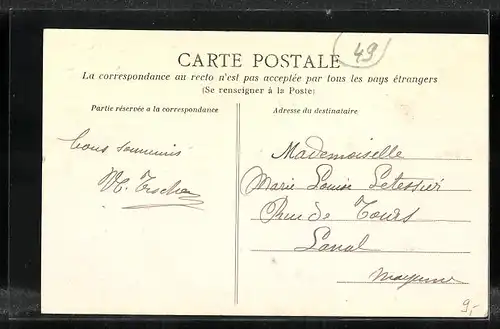 49
CARTE POSTALE
La correspondance au recto n'est pas acceptée par tous les pays étrangers
(Se renseigner à la Poste)
Partie réservée a la correspondance
Adresse du destinataire
bons souvenirs
Mademoiselle
Marie Louise Letessier
Rue de Tours
Laval
Mayenne
9,-